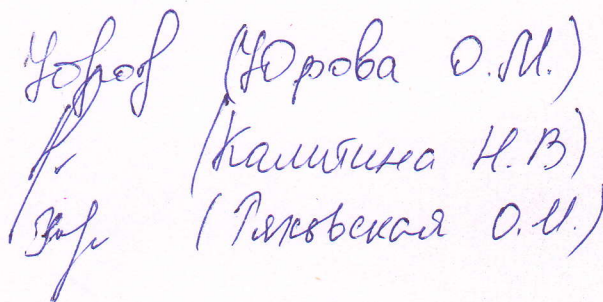 Юров (Юрова О.М.)
(Калитина Н.В)
(Ряховская О.И.)